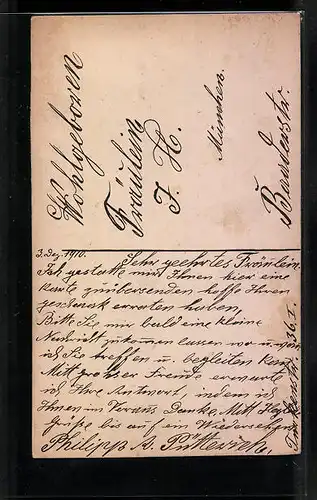 Wohlgeboren
Fräulein
J. H.
München.
3. Dez. 1910. Sehr geehrtes Fräulein.
Ich gestatte mir Ihnen hier eine
karte zuübersenden hoffe Ihren
geschmak erraten haben
Bitte Sie mir bald eine kleine
Nachricht zukommen lassen wo u. wann
ich Sie treffen u. begleiten kann
Mit grosser Freude erwarte
ich Ihre Antwort, indem ich
Ihnen im Voraus Danke. Mit
Grüße bis auf ein Wiedersehen
Philipp A. Pütterich,